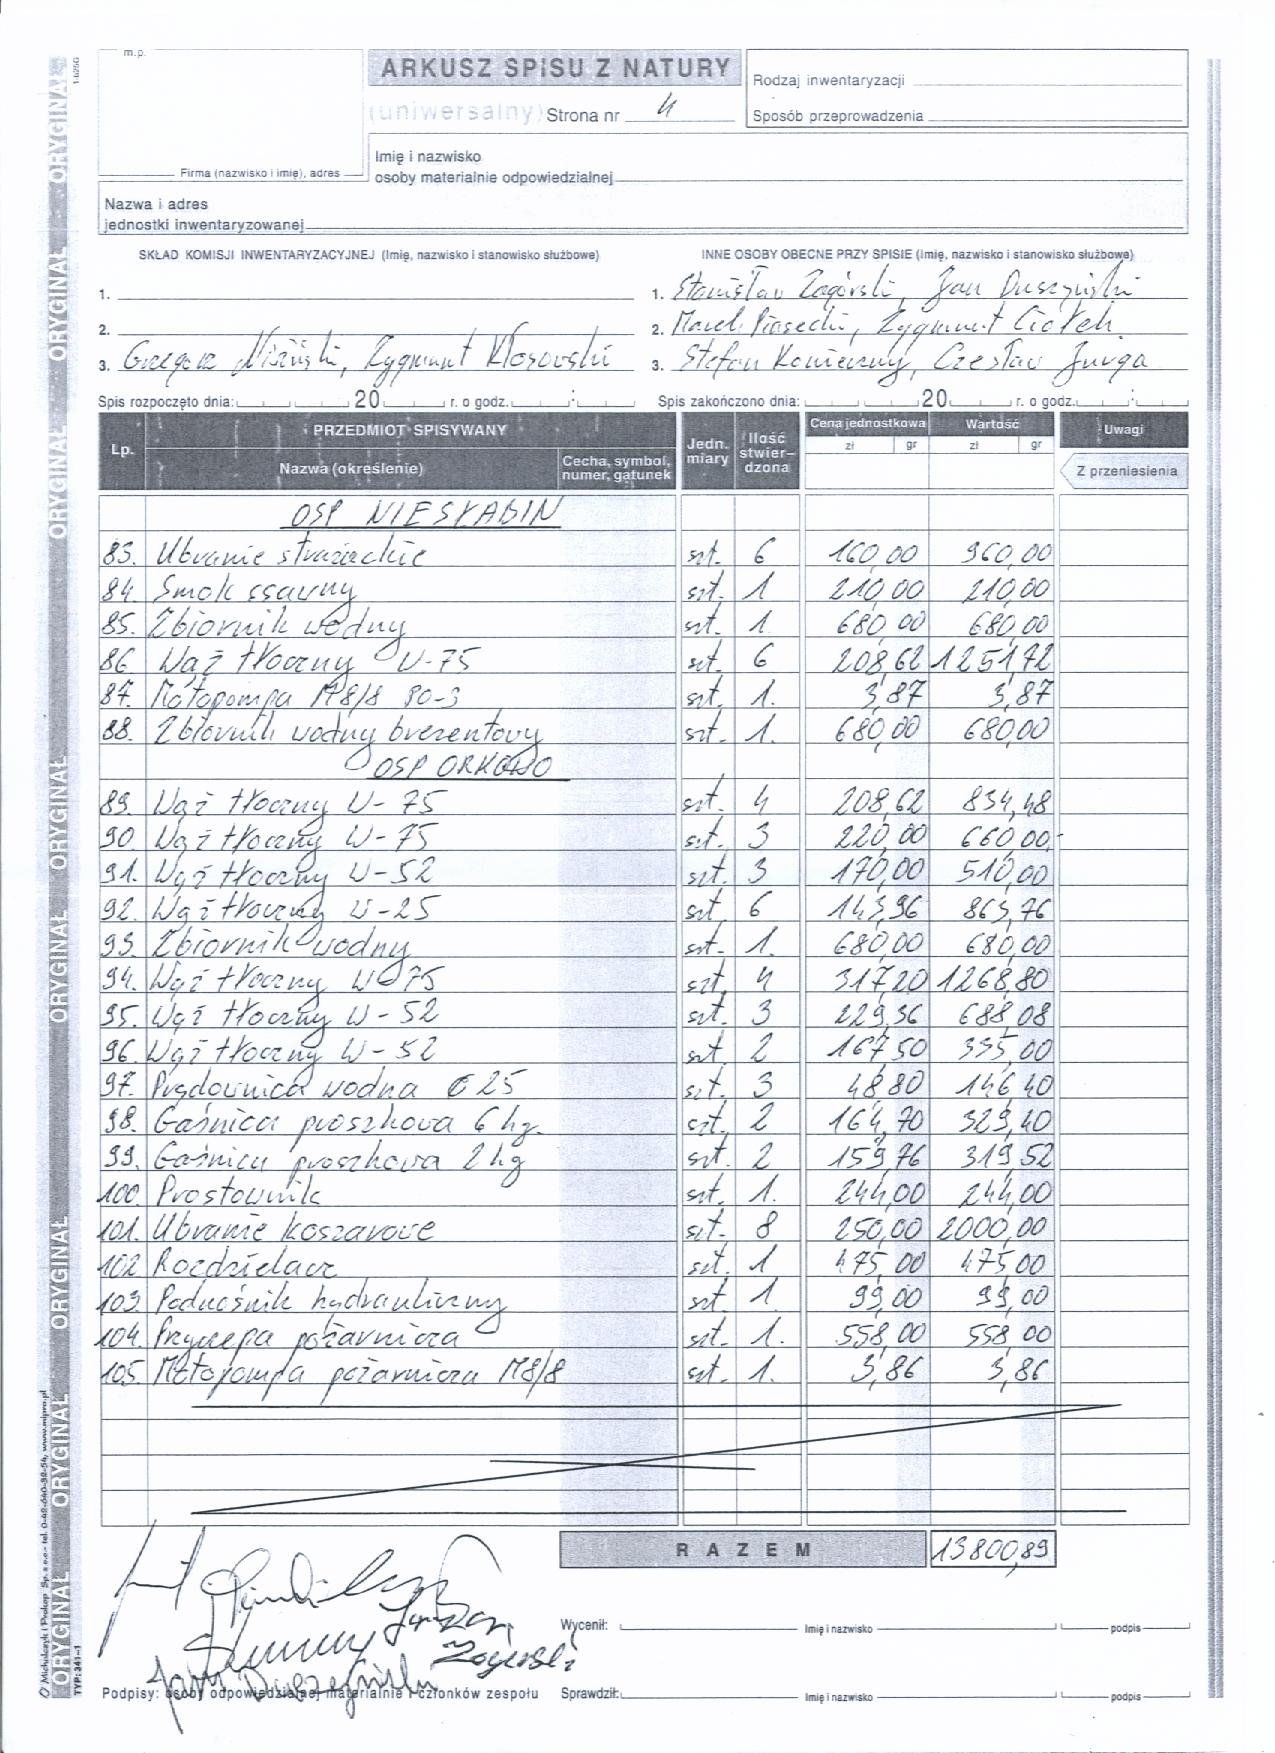 m.p.
ARKUSZ SPISU Z NATURY
(uniwersalny) Strona nr 4
Rodzaj inwentaryzacji
Sposób przeprowadzenia
Firma (nazwisko i imię), adres
Imię i nazwisko
osoby materialnie odpowiedzialnej
Nazwa i adres
jednostki inwentaryzowanej
SKŁAD KOMISJI INWENTARYZACYJNEJ (Imię, nazwisko i stanowisko służbowe)
1.
2.
3. Grzegorz Niżiński, Zygmunt Kłosowski
INNE OSOBY OBECNE PRZY SPISIE (Imię, nazwisko i stanowisko służbowe)
1. Stanisław Zagórski, Jan Duszyński
2. Marek Piasecki, Zygmunt Ciołek
3. Stefan Konieczny, Czesław Jurga
Spis rozpoczęto dnia: 20 r. o godz. :
Spis zakończono dnia: 20 r. o godz. :
Lp. PRZEDMIOT SPISYWANY Jedn. miary Ilość stwierdzona Cena jednostkowa Wartość Uwagi
Nazwa (określenie) Cecha, symbol, numer, gatunek zł gr zł gr Z przeniesienia
OSP NIESŁABIN
83. Ubranie strażackie szt. 6 160,00 960,00
84. Smok ssawny szt. 1 210,00 210,00
85. Zbiornik wodny szt. 1. 680,00 680,00
86. Wąż tłoczny W-75 szt. 6 208,62 1251,72
87. Motopompa M8/8 80-3 szt. 1. 3,87 3,87
88. Zbiornik wodny brezentowy szt. 1. 680,00 680,00
OSP ORKOWO
89. Wąż tłoczny W-75 szt. 4 208,62 834,48
90. Wąż tłoczny W-75 szt. 3 220,00 660,00
91. Wąż tłoczny W-52 szt. 3 170,00 510,00
92. Wąż tłoczny W-25 szt. 6 143,96 863,76
93. Zbiornik wodny szt. 1. 680,00 680,00
94. Wąż tłoczny W-75 szt. 4 317,20 1268,80
95. Wąż tłoczny W-52 szt. 3 229,36 688,08
96. Wąż tłoczny W-52 szt. 2 167,50 335,00
97. Prądownica wodna C 25 szt. 3 48,80 146,40
98. Gaśnica proszkowa 6 kg. szt. 2 164,70 329,40
99. Gaśnica proszkowa 2 kg szt. 2 159,76 319,52
100. Prostownik szt. 1. 244,00 244,00
101. Ubranie koszarowe szt. 8 250,00 2000,00
102. Rozdzielacz szt. 1 475,00 475,00
103. Podnośnik hydrauliczny szt. 1 99,00 99,00
104. Przyczepa pożarnicza szt. 1. 558,00 558,00
105. Motopompa pożarnicza M8/8 szt. 1. 3,86 3,86
RAZEM 13800,89
Zagórski
Jan Duszyński
Wycenił: Imię i nazwisko podpis
Podpisy: osoby odpowiedzialnej materialnie i członków zespołu
Sprawdził: Imię i nazwisko podpis
ORYGINAŁ ORYGINAŁ ORYGINAŁ ORYGINAŁ ORYGINAŁ ORYGINAŁ ORYGINAŁ ORYGINAŁ ORYGINAŁ
1-825G
© Michalczyk i Prokop Sp. z o.o. tel. 0-42-640-92-54, www.mipro.pl
TYP: 341-1